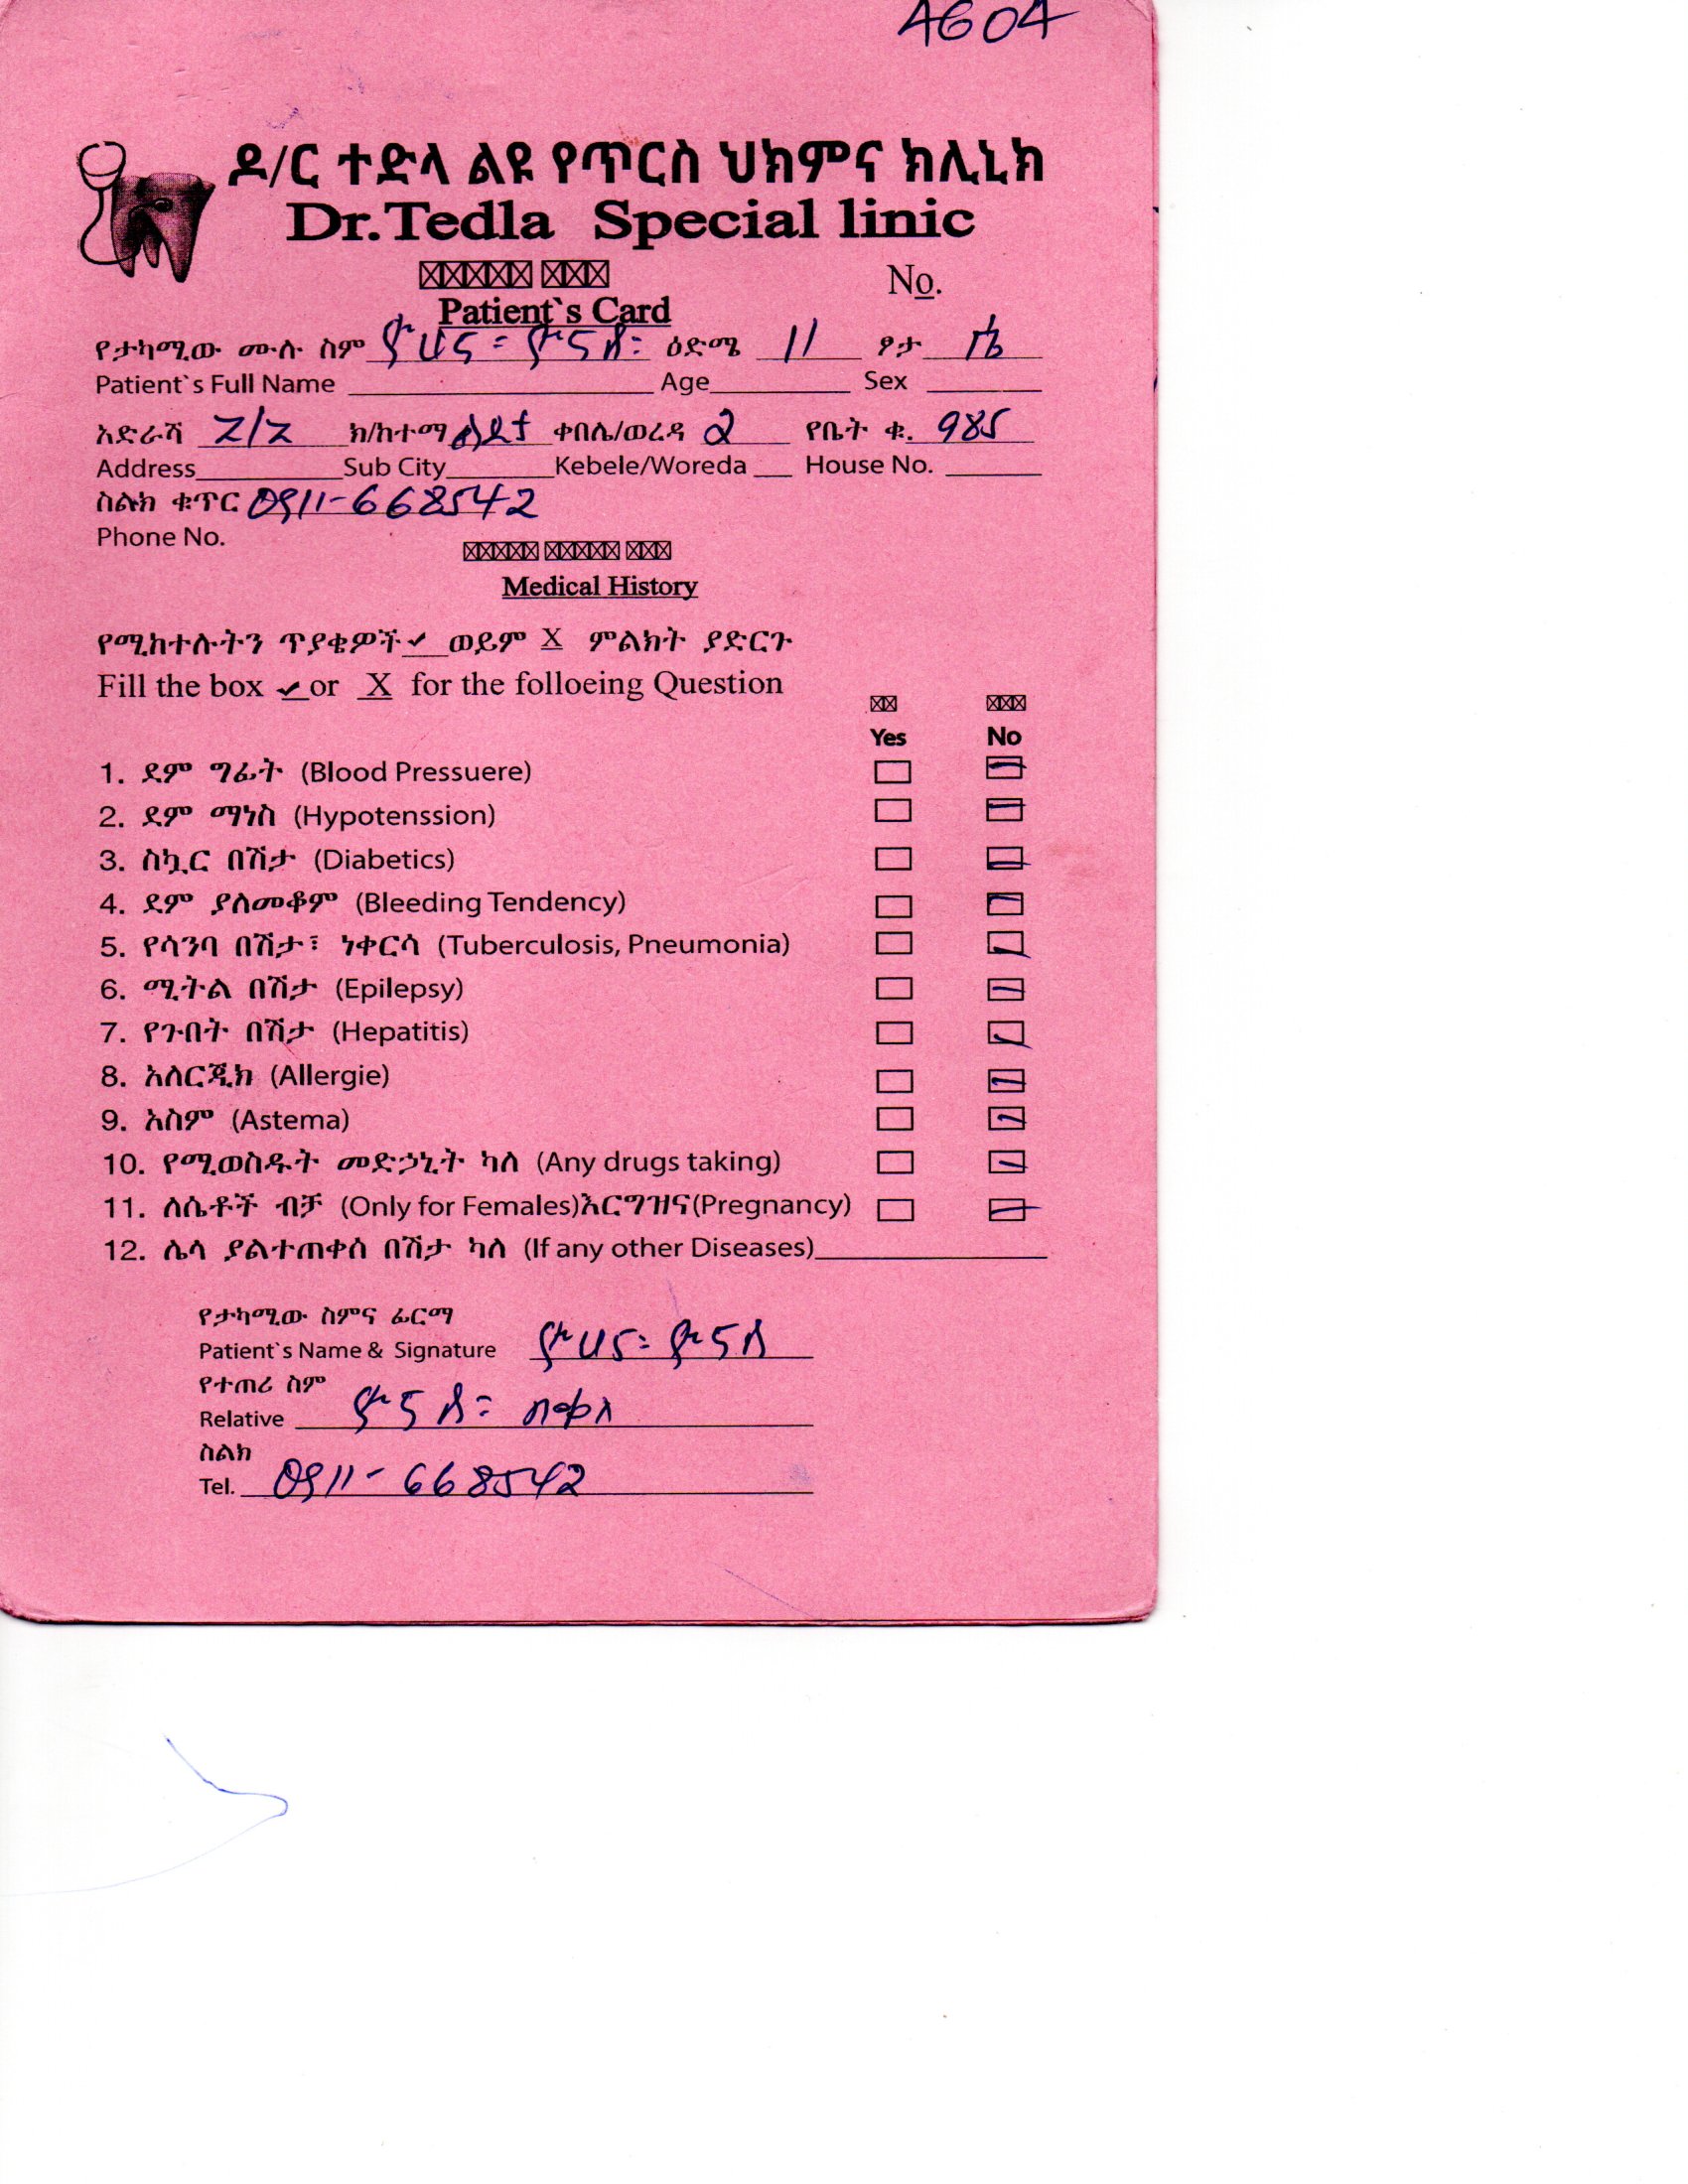 4604
ዶ/ር ተድላ ልዩ የጥርስ ህክምና ክሊኒክ
Dr.Tedla Special linic
No.
Patient`s Card
የታካሚው ሙሉ ስም ዮሀና፡ ዮናስ፡ ዕድሜ 11 ፆታ ሴ
Patient`s Full Name Age Sex
አድራሻ Z/Z ክ/ከተማ ልደታ ቀበሌ/ወረዳ 2 የቤት ቁ. 985
Address Sub City Kebele/Woreda House No.
ስልክ ቁጥር 0911-668542
Phone No.
Medical History
የሚከተሉትን ጥያቄዎች ✓ ወይም X ምልክት ያድርጉ
Fill the box ✓ or X for the folloeing Question
Yes No
1. ደም ግፊት (Blood Pressuere)
2. ደም ማነስ (Hypotenssion)
3. ስኳር በሽታ (Diabetics)
4. ደም ያለመቆም (Bleeding Tendency)
5. የሳንባ በሽታ፣ ነቀርሳ (Tuberculosis, Pneumonia)
6. ሚትል በሽታ (Epilepsy)
7. የጉበት በሽታ (Hepatitis)
8. አለርጂክ (Allergie)
9. አስም (Astema)
10. የሚወስዱት መድኃኒት ካለ (Any drugs taking)
11. ለሴቶች ብቻ (Only for Females)እርግዝና(Pregnancy)
12. ሌላ ያልተጠቀሰ በሽታ ካለ (If any other Diseases)
የታካሚው ስምና ፊርማ
Patient`s Name & Signature ዮሀና፡ ዮናስ
የተጠሪ ስም
Relative ዮናስ፡ በቀለ
ስልክ
Tel. 0911- 668542